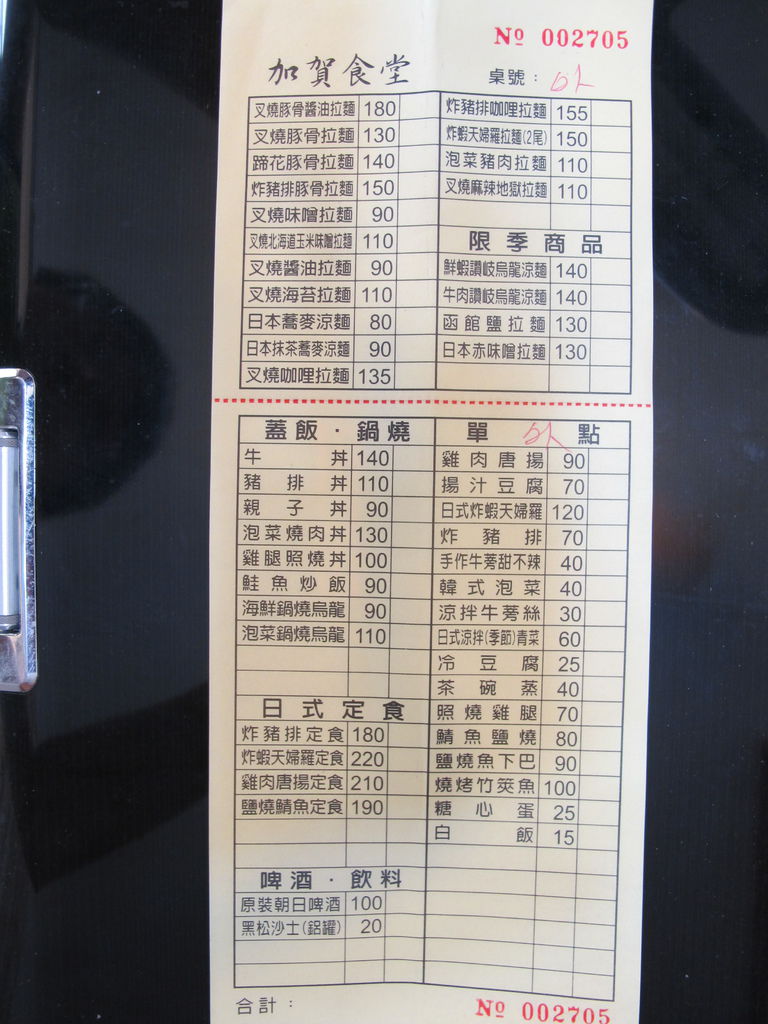 Nº 002705
加賀食堂 桌號：
叉燒豚骨醬油拉麵 180
叉燒豚骨拉麵 130
蹄花豚骨拉麵 140
炸豬排豚骨拉麵 150
叉燒味噌拉麵 90
叉燒北海道玉米味噌拉麵 110
叉燒醬油拉麵 90
叉燒海苔拉麵 110
日本蕎麥涼麵 80
日本抹茶蕎麥涼麵 90
叉燒咖哩拉麵 135
炸豬排咖哩拉麵 155
炸蝦天婦羅拉麵(2尾) 150
泡菜豬肉拉麵 110
叉燒麻辣地獄拉麵 110
限季商品
鮮蝦讚岐烏龍涼麵 140
牛肉讚岐烏龍涼麵 140
函館鹽拉麵 130
日本赤味噌拉麵 130
蓋飯．鍋燒
牛丼 140
豬排丼 110
親子丼 90
泡菜燒肉丼 130
雞腿照燒丼 100
鮭魚炒飯 90
海鮮鍋燒烏龍 90
泡菜鍋燒烏龍 110
日式定食
炸豬排定食 180
炸蝦天婦羅定食 220
雞肉唐揚定食 210
鹽燒鯖魚定食 190
啤酒．飲料
原裝朝日啤酒 100
黑松沙士(鋁罐) 20
單點
雞肉唐揚 90
揚汁豆腐 70
日式炸蝦天婦羅 120
炸豬排 70
手作牛蒡甜不辣 40
韓式泡菜 40
涼拌牛蒡絲 30
日式涼拌(季節)青菜 60
冷豆腐 25
茶碗蒸 40
照燒雞腿 70
鯖魚鹽燒 80
鹽燒魚下巴 90
燒烤竹筴魚 100
糖心蛋 25
白飯 15
合計：
Nº 002705